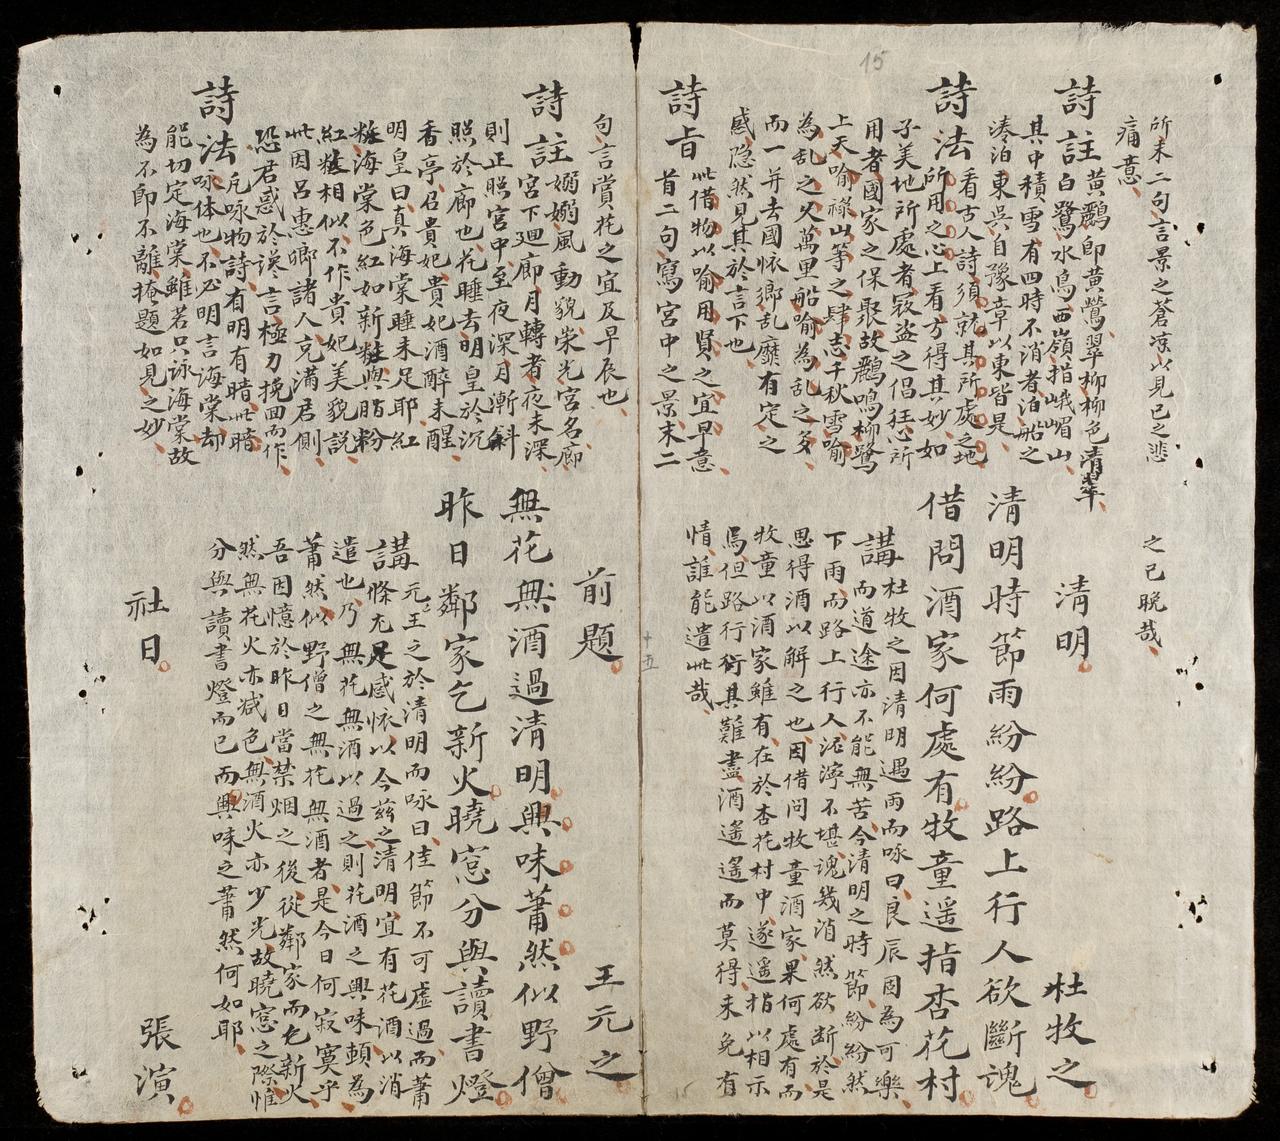 15
所末二句言景之蒼凉以見已之悲
痛意
詩註黄鸝卽黄鶯翠柳柳色清翠
白鷺水鳥西嶺指峨嵋山
其中積雪有四時不消者泊船之
湊泊東吳自豫章以東皆是
詩法看古人詩須就其所處之地
所用之心上看方得其妙如
子美地所處者寇盜之倡狂心所
用者國家之保聚故鸝鳴柳鷺
上天喻祿山等之肆志千秋雪喻
為乱之久萬里船喻為乱之多
而一并去國怀鄉乱靡有定之
感隐然見其於言下也
詩旨此借物以喻用賢之宜早意
首二句寫宮中之景末二
之已晚哉
清明
杜牧之
清明時節雨紛紛路上行人欲斷魂
借問酒家何處有牧童遥指杏花村
講杜牧之因清明遇雨而咏曰良辰固為可樂
而道途亦不能無苦今清明之時節紛紛然
下雨而路上行人泥濘不堪魂幾消然欲断於是
思得酒以解之也因借問牧童酒家果何處有而
牧童以酒家雖有在於杏花村中遂遥指以相示
焉但路行衍其難盡酒遥遥而莫得未免有
情誰能遣此哉
十五
句言賞花之宜及早辰也
詩註嫋嫋風動貌崇光宮名廊
宮下廻廊月轉者夜未深
則正照宮中至夜深月漸斜
照於廊也花睡去明皇於沉
香亭召貴妃貴妃酒醉未醒
明皇曰真海棠睡未足耶紅
粧海棠色紅如新粧與脂粉
紅粧相似不作貴妃美貌説
此因呂惠卿諸人充满君側
恐君惑於讒言極力挽囬而作
詩法凡咏物詩有明有暗此暗
咏体也不必明言海棠却
能切定海棠雖若只詠海棠故
為不卽不離掩題如見之妙
前題
王元之
無花無酒過清明興味蕭然似野僧
昨日鄰家乞新火曉窓分與讀書燈
講元王之於清明而咏曰佳節不可虛過而蕭
條尤足感怀以今兹之清明宜有花酒以消
遣也乃無花無酒以過之則花酒之興味頼為
蕭然似野僧之無花無酒者是今日何寂寞乎
吾因憶於昨日當禁烟之後從鄰家而乞新火
然無花火亦减色無酒火亦少光故曉窓之際惟
分與讀書燈而已而興味之蕭然何如耶
社日
張演